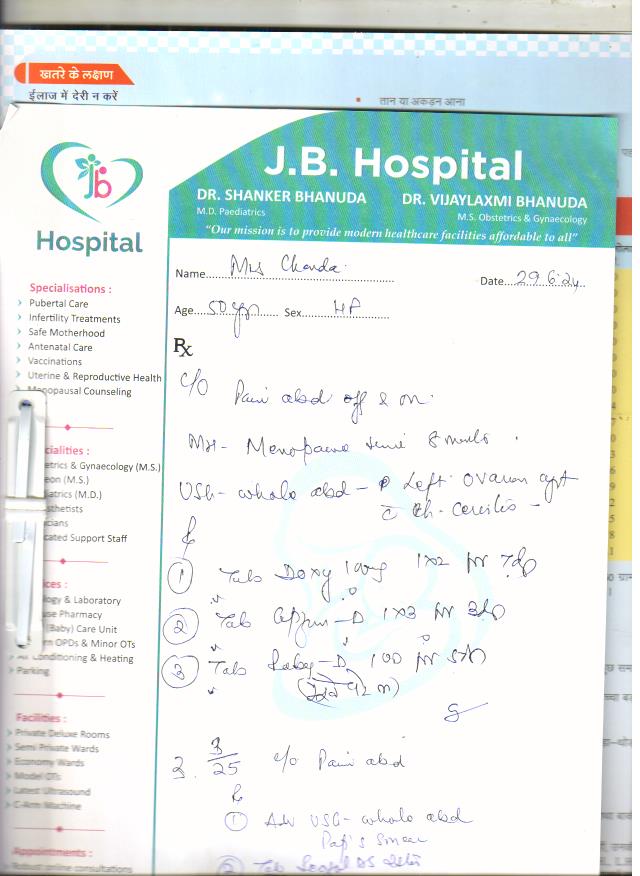 खतरे के लक्षण
ईलाज में देरी न करें
तान या अकड़न आना
J.B. Hospital
DR. SHANKER BHANUDA
M.D. Paediatrics
DR. VIJAYLAXMI BHANUDA
M.S. Obstetrics & Gynaecology
"Our mission is to provide modern healthcare facilities affordable to all"
Jb
Hospital
Name Mrs Chanda
Date 29.6.24
Age 50 yrs Sex
Rx
Specialisations :
Pubertal Care
Infertility Treatments
Safe Motherhood
Antenatal Care
Vaccinations
Uterine & Reproductive Health
Menopausal Counseling
cialities :
etrics & Gynaecology (M.S.)
eon (M.S.)
iatrics (M.D.)
sthetists
icians
cated Support Staff
ices :
logy & Laboratory
use Pharmacy
(Baby) Care Unit
rn OPDs & Minor OTs
Air Conditioning & Heating
Parking
Facilities :
Private Deluxe Rooms
Semi Private Wards
Economy Wards
Model OTs
Latest Ultrasound
C-Arm Machine
Appointments :
Robust online consultations
C/O Pain abd off & on
MH - Menopause 8 months
USG - whole abd - Left ovarian cyst
1 Tab Doxy 100mg 1x2 for 7d
2 Tab -D 1x3 for 3d
3 Tab -D 1 OD for
3/25 C/O Pain abd
1 Adv USG - whole abd
Pap's Smear
2 Tab